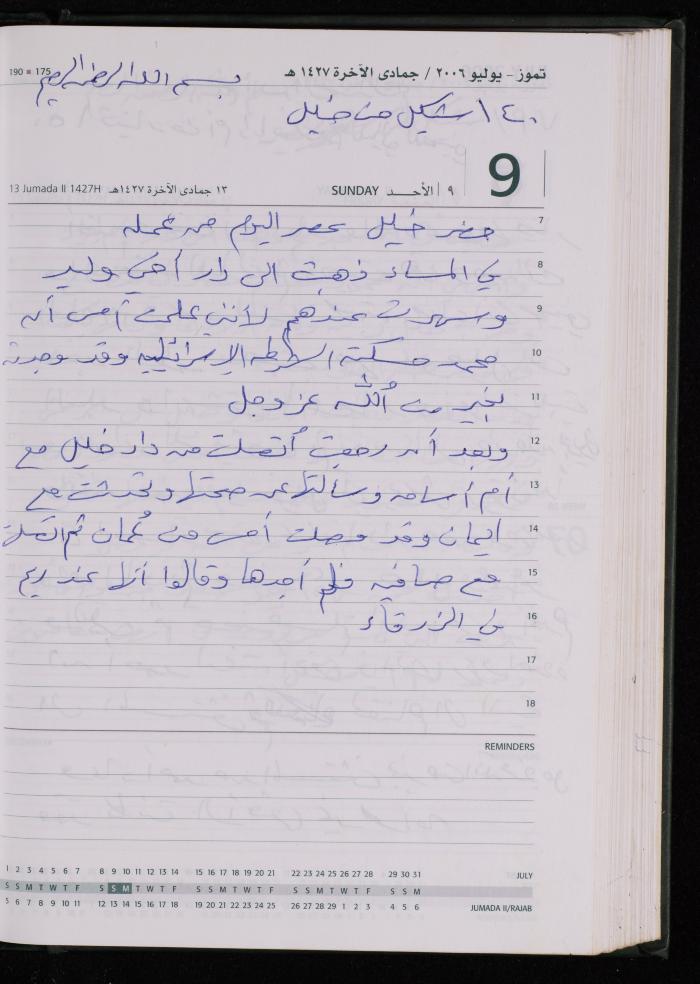 تموز - يوليو ٢٠٠٦ / جمادى الآخرة ١٤٢٧ هـ
190 ■ 175
بسم الله الرحمن الرحيم
١٤٠ شيكل من خليل
9
٩ | الأحــد SUNDAY
١٣ جمادى الآخرة ١٤٢٧هـ 13 Jumada II 1427H
7 حضر خليل عصر اليوم من عمله
8 في المساء ذهبت الى دار أخي وليد
9 وسهرت عندهم لأنني علمت أمس أن
10 محمد مسكته الشرطه الإسرائيليه وقد وجدته
11 بخير من الله عز وجل
12 وبعد أن رجعت أتصلت من دار خليل مع
13 أم أسامه وسألتها عن صحتها وتحدثت مع
14 ايمان وقد وصلت أمس من عمان ثم اتصلت
15 مع صافيه فلم أجدها وقالوا أنها عند ريم
16 في الزرقاء
17
18
REMINDERS
1 2 3 4 5 6 7 8 9 10 11 12 13 14 15 16 17 18 19 20 21 22 23 24 25 26 27 28 29 30 31 JULY
S S M T W T F S S M T W T F S S M T W T F S S M T W T F S S M
5 6 7 8 9 10 11 12 13 14 15 16 17 18 19 20 21 22 23 24 25 26 27 28 29 1 2 3 4 5 6 JUMADA II/RAJAB